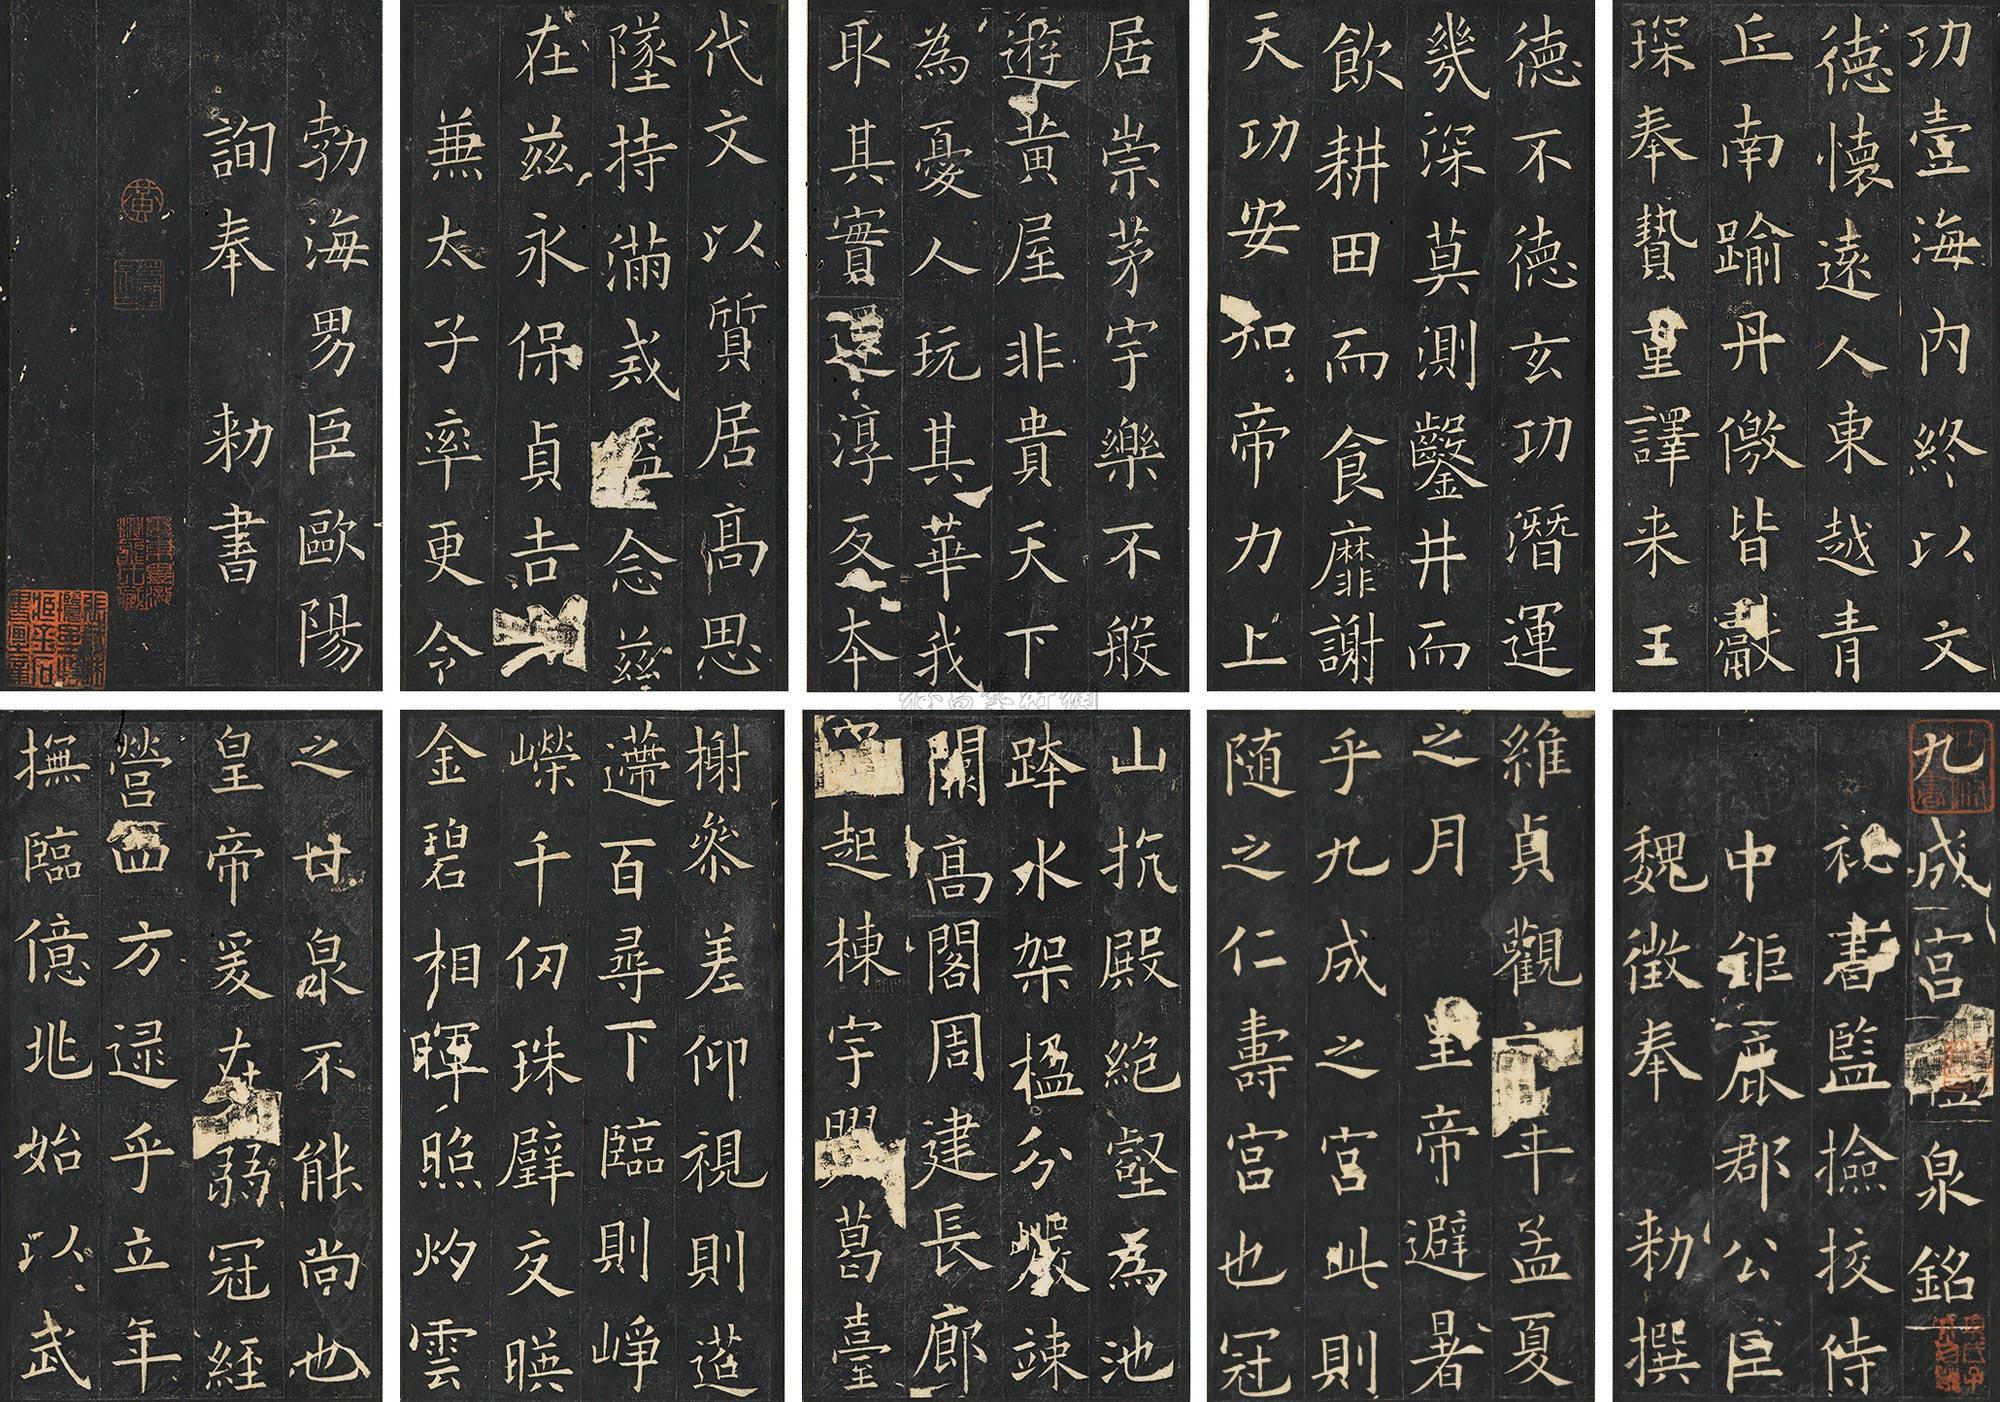 九成宮醴泉銘
祕書監撿挍侍
中鉅鹿郡公臣
魏徵奉 勑撰
維貞觀六年孟夏
之月 皇帝避暑
乎九成之宮此則
随之仁壽宮也冠
山抗殿絶壑為池
跨水架楹分巖竦
闕高閣周建長廊
四起棟宇膠葛臺
榭參差仰視則迢
遰百尋下臨則崢
嶸千仞珠璧交暎
金碧相暉照灼雲
之甘泉不能尚也
皇帝爰在弱冠經
營四方逮乎立年
撫臨億兆始以武
功壹海内終以文
德懷遠人東越青
丘南踰丹徼皆獻
琛奉贄重譯来王
德不德玄功潛運
幾深莫測鑿井而
飲耕田而食靡謝
天功安知帝力上
居崇茅宇樂不般
遊黃屋非貴天下
為憂人玩其華我
取其實還淳反本
代文以質居高思
墜持滿戒溢念茲
在茲永保貞吉
兼太子率更令
勃海男臣歐陽
詢奉 勑書